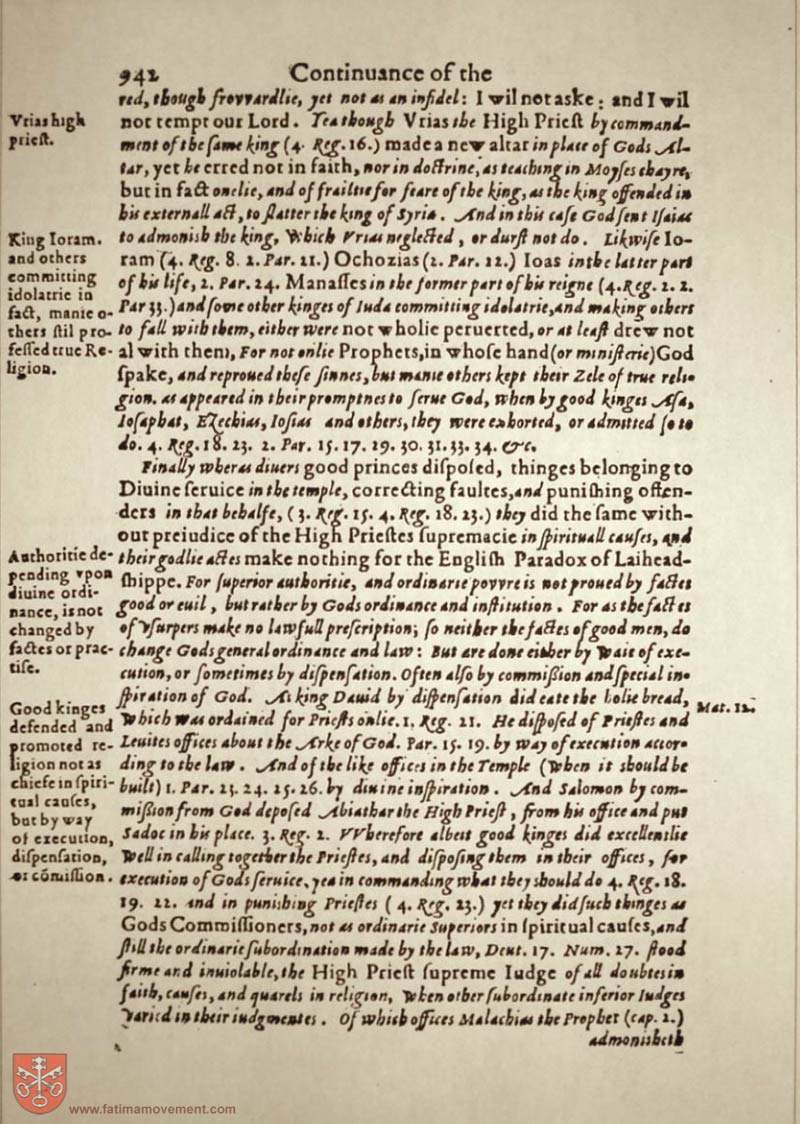 942 Continuance of the
red, though frovvardlie, yet not as an infidel: I wil not aske: and I wil
not tempt our Lord. Yea though Vrias the High Priest by command-
ment of the same king (4. Reg. 16.) made a new altar in place of Gods Al-
tar, yet he erred not in faith, nor in doctrine, as teaching in Moyses chayre,
but in fact onelie, and of frailtie for feare of the king, as the king offended in
his externall act, to flatter the king of Syria. And in this case God sent Isaias
to admonish the king, Which Vrias neglected, or durst not do. Likwise Io-
ram (4. Reg. 8. 2. Par. 21.) Ochozias (2. Par. 22.) Ioas in the latter part
of his life, 2. Par. 24. Manasses in the former part of his reigne (4. Reg. 2. 2.
Par 33.) and some other kinges of Iuda committing idolatrie, and making others
to fall with them, either were not wholie peruerted, or at least drew not
al with them, For not onlie Prophets, in whose hand (or ministerie) God
spake, and reproued these sinnes, but manie others kept their Zele of true reli-
gion. as appeared in their promptnes to serue God, when by good kinges Asa,
Iosaphat, EZechias, Iosias and others, they were exhorted, or admitted so to
do. 4. Reg. 18. 23. 2. Par. 15. 17. 29. 30. 31. 33. 34. &c.
Finally wheras diuers good princes disposed, thinges belonging to
Diuine seruice in the temple, correcting faultes, and punishing offen-
ders in that behalfe, (3. Reg. 15. 4. Reg. 18. 23.) they did the same with-
out preiudice of the High Priestes supremacie in spirituall causes, and
their godlie actes make nothing for the English Paradox of Laihead-
shippe. For superior authoritie, and ordinarie povvre is not proued by factes
good or euil, but rather by Gods ordinance and institution. For as the factes
of vsurpers make no lawfull prescription; so neither the factes of good men, do
change Gods general ordinance and law: But are done either by Waie of exe-
cution, or sometimes by dispensation. Often also by commission and special in-
spiration of God. As king Dauid by dispensation did eate the holie bread,
Which was ordained for Priests onlie. 1. Reg. 21. He disposed of Priestes and
Leuites offices about the Arke of God. Par. 15. 19. by way of execution accor-
ding to the law. And of the like offices in the Temple (When it should be
built) 1. Par. 23. 24. 25. 26. by diuine inspiration. And Salomon by com-
mission from God deposed Abiathar the High Priest, from his office and put
Sadoc in his place. 3. Reg. 2. VVherefore albeit good kinges did excellentlie
Well in calling together the Priestes, and disposing them in their offices, for
execution of Gods seruice, yea in commanding what they should do 4. Reg. 18.
19. 22. and in punishing Priestes (4. Reg. 23.) yet they did such thinges as
Gods Commissioners, not as ordinarie Superiors in spiritual causes, and
still the ordinarie subordination made by the law, Deut. 17. Num. 27. stood
firme and inuiolable, the High Priest supreme Iudge of all doubtes in
faith, causes, and quarels in religion, When other subordinate inferior Iudges
Varied in their iudgmentes. Of which offices Malachias the Prophet (cap. 2.)
admonisheth
Vrias high
priest.
King Ioram.
and others
committing
idolatrie in
fact, manie o-
thers stil pro-
fessed true Re-
ligion.
Authoritie de-
pending vpon
diuine ordi-
nance, is not
changed by
factes or prac-
tise.
Good kinges
defended and
promoted re-
ligion not as
chiefe in spiri-
tual causes,
but by way
of execution,
dispensation,
or cõmission.
Mat. 12.
www.fatimamovement.com